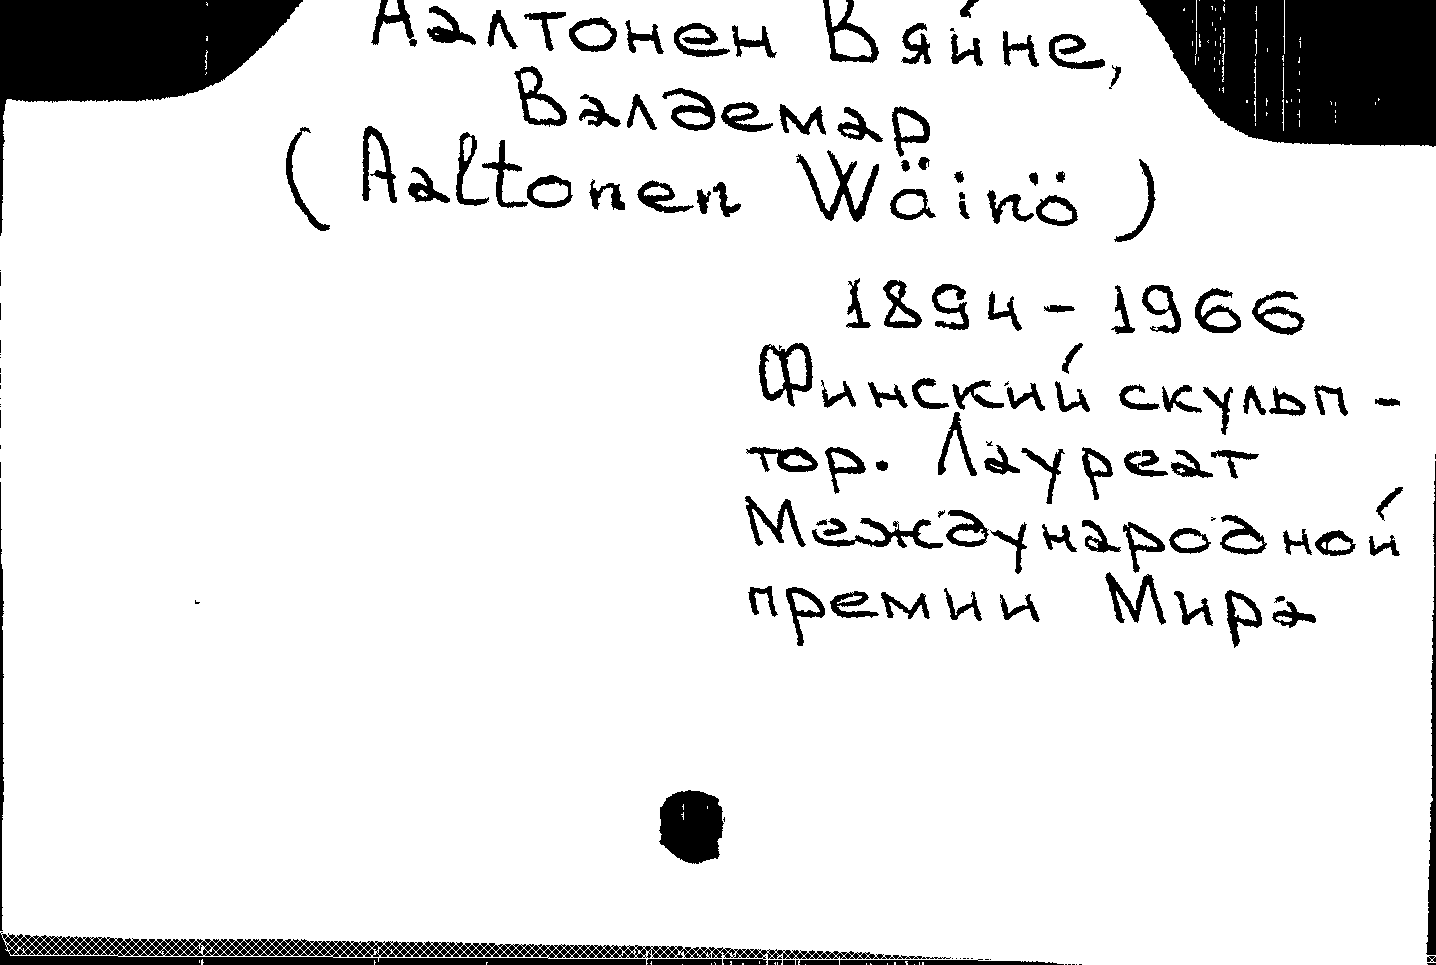 Аалтонен Вяйне,
Валдемар
(Aaltonen Wäinö)
1894 - 1966
Финский скульп-
тор. Лауреат
Международной
премии Мира